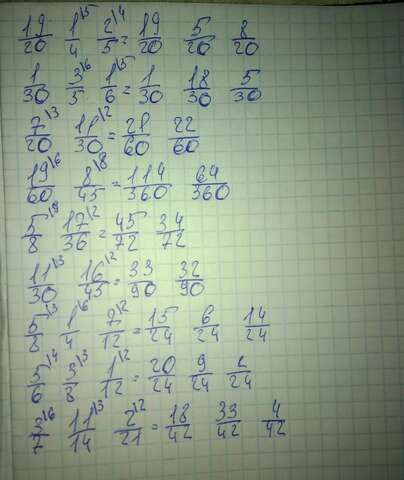 19/20 1/4\5 2/5\4 = 19/20 5/20 8/20
1/30 3/5\6 1/6\5 = 1/30 18/30 5/30
7/20\3 11/30\2 = 21/60 22/60
19/60\6 8/45\8 = 114/360 64/360
5/8\9 17/36\2 = 45/72 34/72
11/30\3 16/45\2 = 33/90 32/90
5/8\3 1/4\6 7/12\2 = 15/24 6/24 14/24
5/6\4 3/8\3 1/12\2 = 20/24 9/24 2/24
3/7\6 11/14\3 2/21\2 = 18/42 33/42 4/42